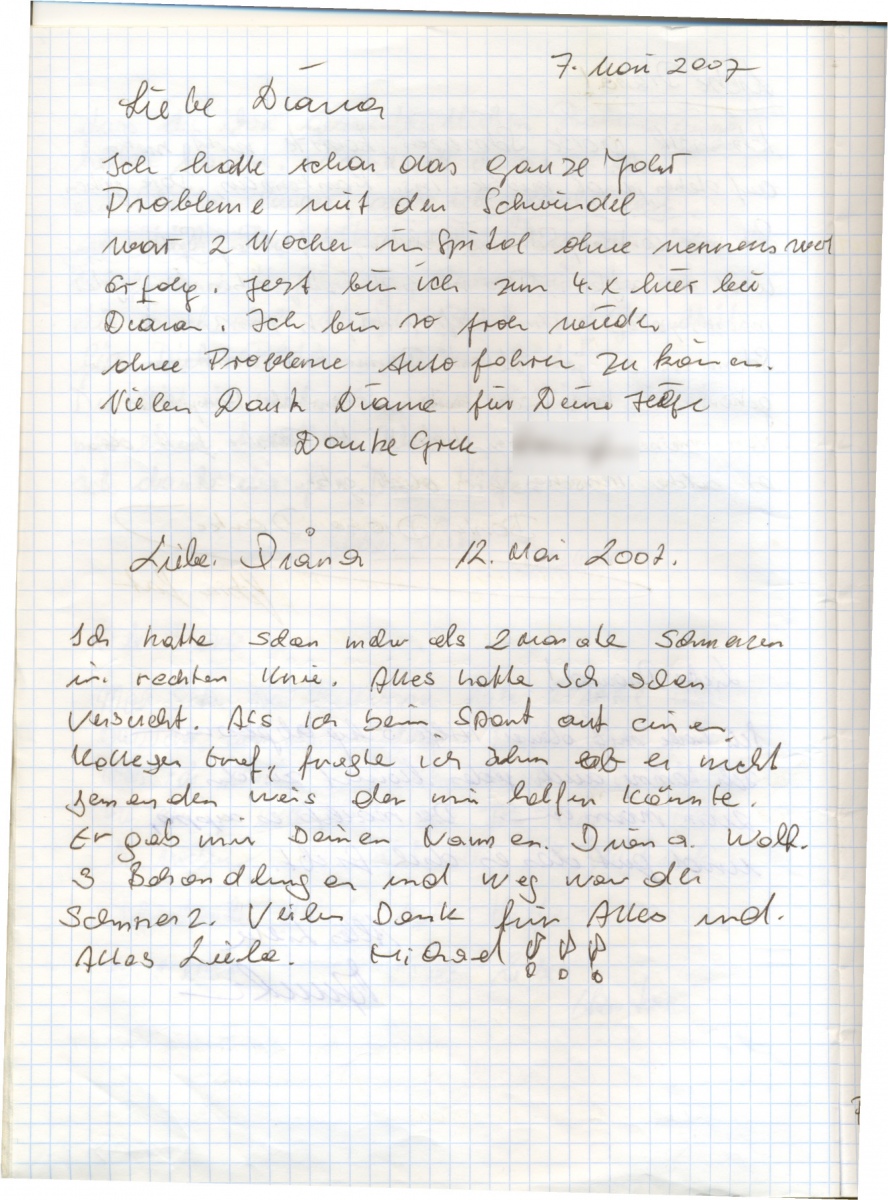 7. Mai 2007
Liebe Diana
Ich hatte schon das ganze Jahr
Probleme mit den Schwindel
war 2 Wochen in Spital ohne nennenswert
Erfolg. Jezt bin ich zum 4. x hier bei
Diana. Ich bin so froh wieder
ohne Probleme Auto fahren zu könen.
Vielen Dank Diana für Deine Hilfe
Danke
Liebe Diana 12. Mai 2007.
Ich hatte schon mehr als 2 Monate Schmerzen
im rechten Knie. Alles hatte Ich schon
versucht. Als Ich beim Sport auf einen
Kollegen traf, fragte ich ihm ob er nicht
jemenden weis der mir helfen könnte.
Er gab mir Deinen Nammen. Diana. Wolf.
3 Behandlungen und weg war der
Schmerz. Vielen Dank für Alles und.
Alles Liebe. Michael !!!